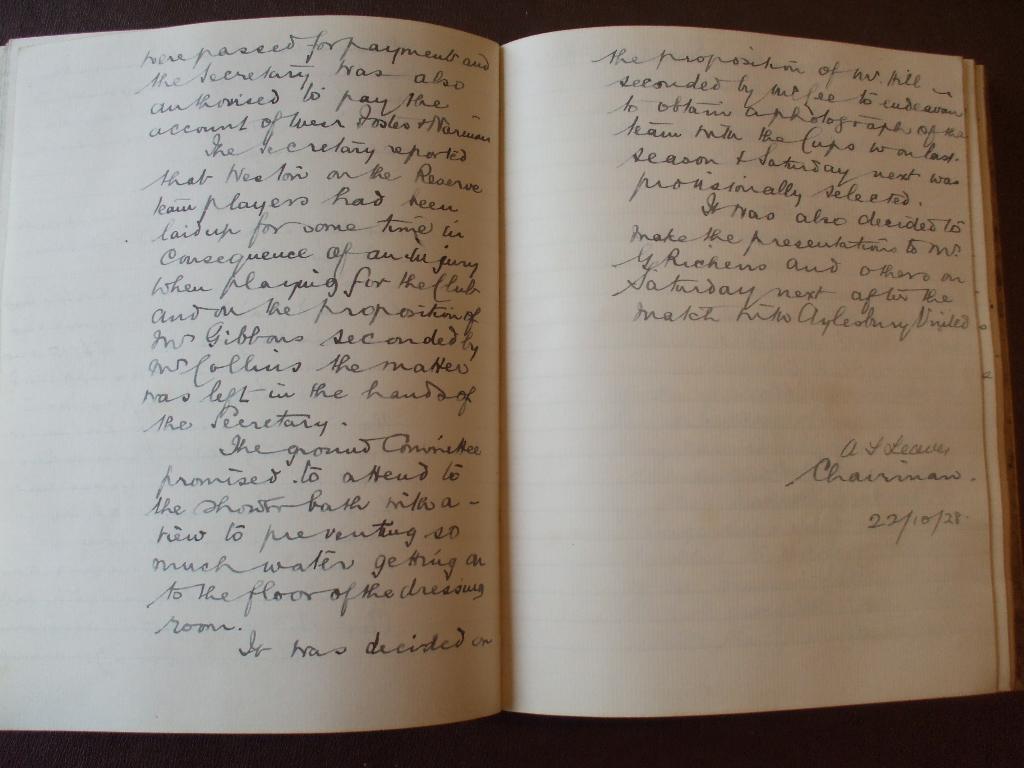 were passed for payment and
the Secretary was also
authorised to pay the
account of Messrs Foster & Warman
The Secretary reported
that Weston on the Reserve
team players had been
laid up for some time in
consequence of an injury
when playing for the Club
and on the proposition of
Mr Gibbons seconded by
Mr Collins the matter
was left in the hands of
the Secretary.
The ground Committee
promised to attend to
the shower bath with a
view to preventing so
much water getting on
to the floor of the dressing
room.
It was decided on
the proposition of Mr Hill
seconded by Mr Gee to endeavour
to obtain a photograph of the
team with the Cups won last
season & Saturday next was
provisionally selected.
It was also decided to
make the presentations to Mr
G Richens and others on
Saturday next after the
match with Aylesbury United
Chairman.
22/10/28